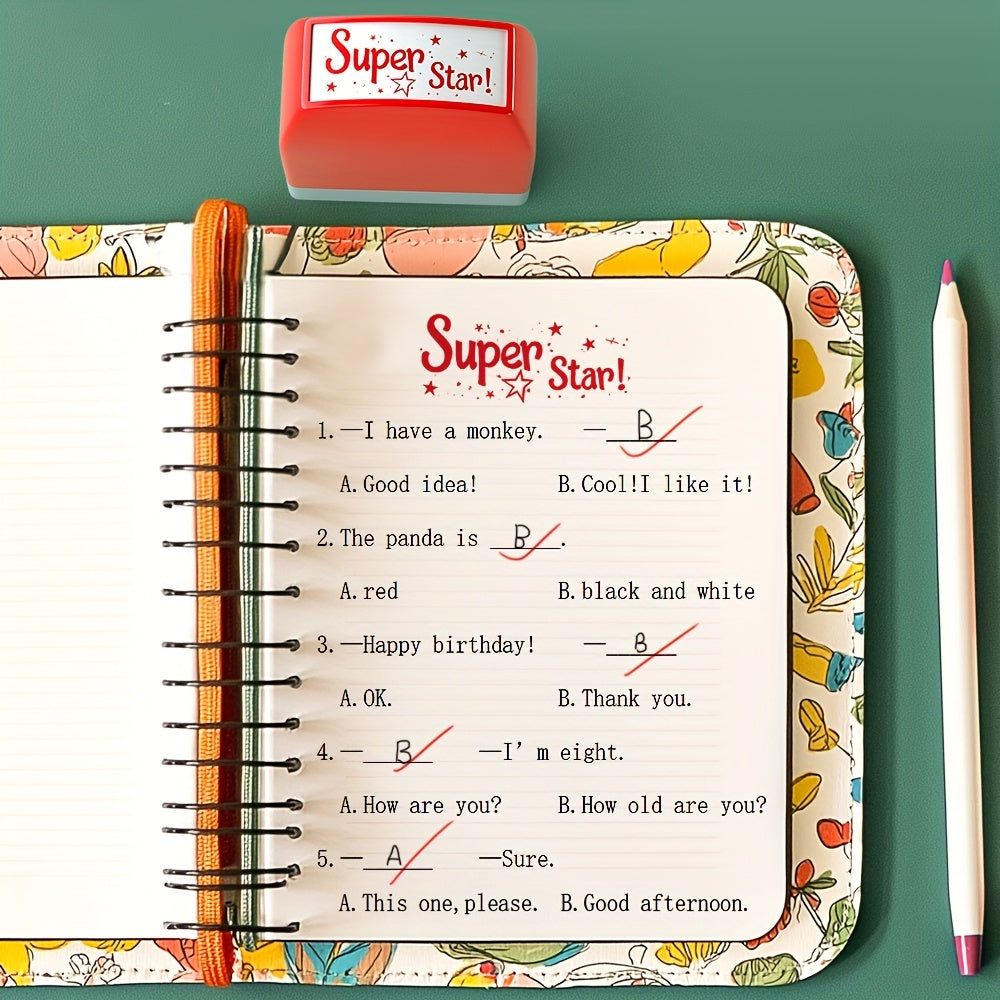 Super
Star!
Super
Star!
1.—I have a monkey. — B
A.Good idea! B.Cool!I like it!
2.The panda is B.
A.red B.black and white
3.—Happy birthday! — B
A.OK. B.Thank you.
4.— B —I'm eight.
A.How are you? B.How old are you?
5.— A —Sure.
A.This one,please. B.Good afternoon.